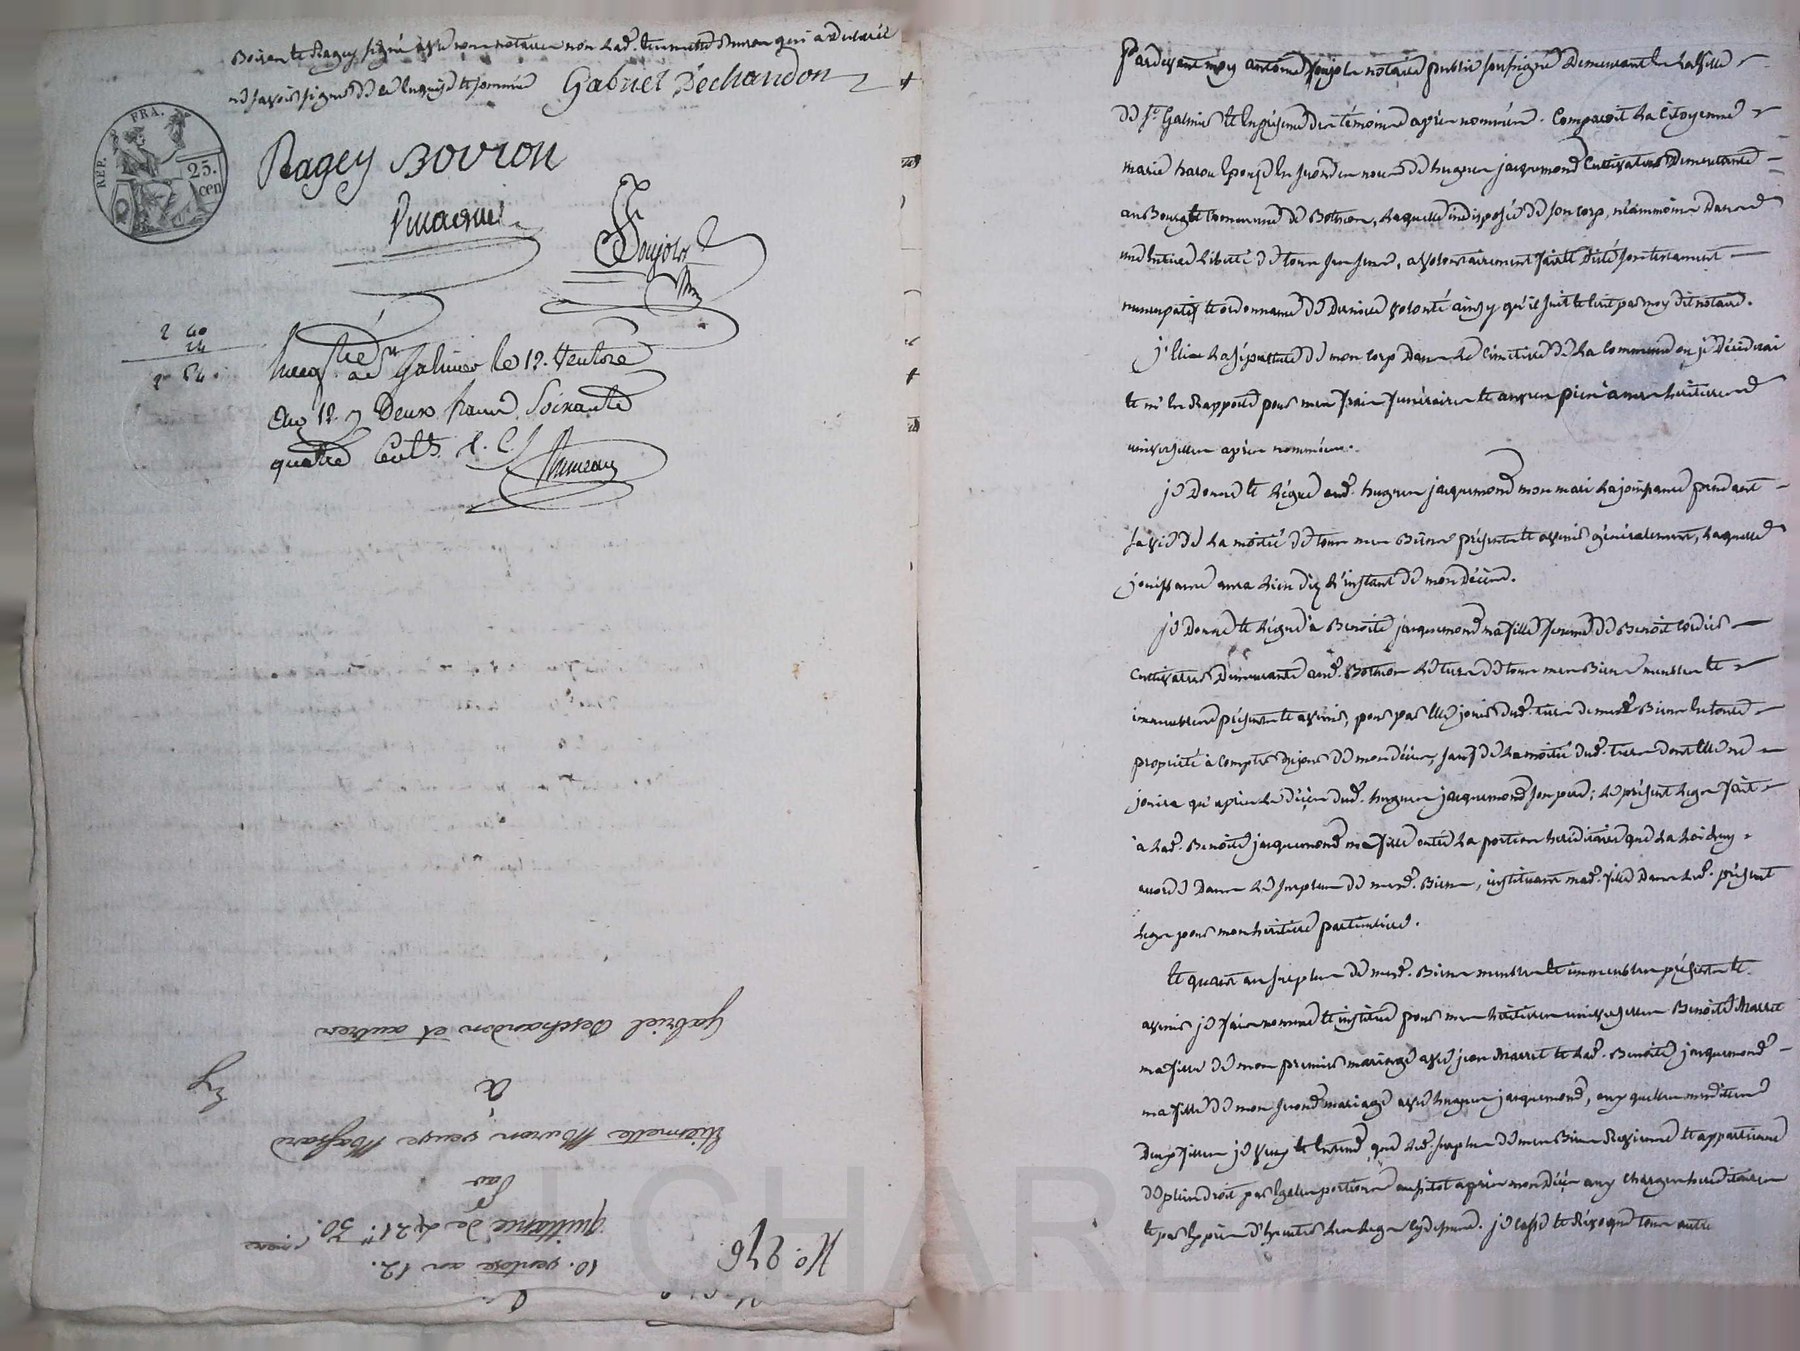 Boiron et Ragey signé avec nous notaire non lad. etiennette Muron qui a declaré
ne savoir signer de ce enquise et sommée Gabriel Dechandon
REP. FRA.
25. cen
Ragey Boiron
Soujolz
2 40
24
2 64
Enregtré à St Galmier le 12. Ventose
an 12. Deux francs Soixante
quatre Cent.
Pardevant moy antoine Soujolz notaire public soussigné demeurant en la ville
de St. Galmier et en présence des témoins après nommés. Comparoit la Citoyenne
marie épouse en secondes noces de hugues jacquemond Cultivateur demeurante
au Bourg et Commune de Bothéon, laquelle indisposée de son corp, néammoins dans
une entière liberté de tous ses sens, a volontairement fait et dicté son testament
nuncupatif et ordonnance de dernière volonté ainsy qu'il suit et écrit par moy dit notaire.
j'élis la sépulture de mon corp dans le cimetière de la Commune ou je décéderai
et m'en rapporte pour mes frais funéraires et œuvres pies à mes héritières
universelles après nommées.
je donne et lègue aud. hugues jacquemond mon mari la jouissance pendant
sa vie de la moitié de tous mes Biens présents et avenir généralement, laquelle
jouissance aura lieu dez l'instant de mon décès.
je donne et lègue à Benoite jacquemond ma fille femme de Benoit
Cultivateur demeurante aud. Bothéon le tiers de tous mes Biens meubles et
immeubles présents et avenir, pour par elle jouir dud. tiers de mesd. Biens en toute
propriété à compter du jour de mon décès, sauf de la moitié dud. tiers dont elle ne
jouira qu'après le décès dud. hugues jacquemond son père; le présent legs fait
à lad. Benoite jacquemond ma fille outre la portion héréditaire que la loi luy
accorde dans le surplus de mesd. Biens, instituant mad. fille dans led. présent
legs pour mon héritière particulière.
et quant au surplus de mesd. Biens meubles et immeubles présents et
avenir je fais nomme et institue pour mes héritières universelles Benoite Marret
ma fille de mon premier mariage avec jean Marret et lad. Benoite jacquemond
ma fille de mon second mariage avec hugues jacquemond, auxquelles mesdittes
deux filles je veux et entend que led. surplus de mes Biens revienne et appartienne
de plein droit par égales portions aussitot après mon décès aux charges héréditaires
et par exprès d'exécuter les legs cydessus. je casse et révoque tous autre
No. 276
10. ventose an 12.
quittance de 421ᶠ 30.
Par
Etiennette Muron veuve Massard
à
Gabriel Deschandon et autres